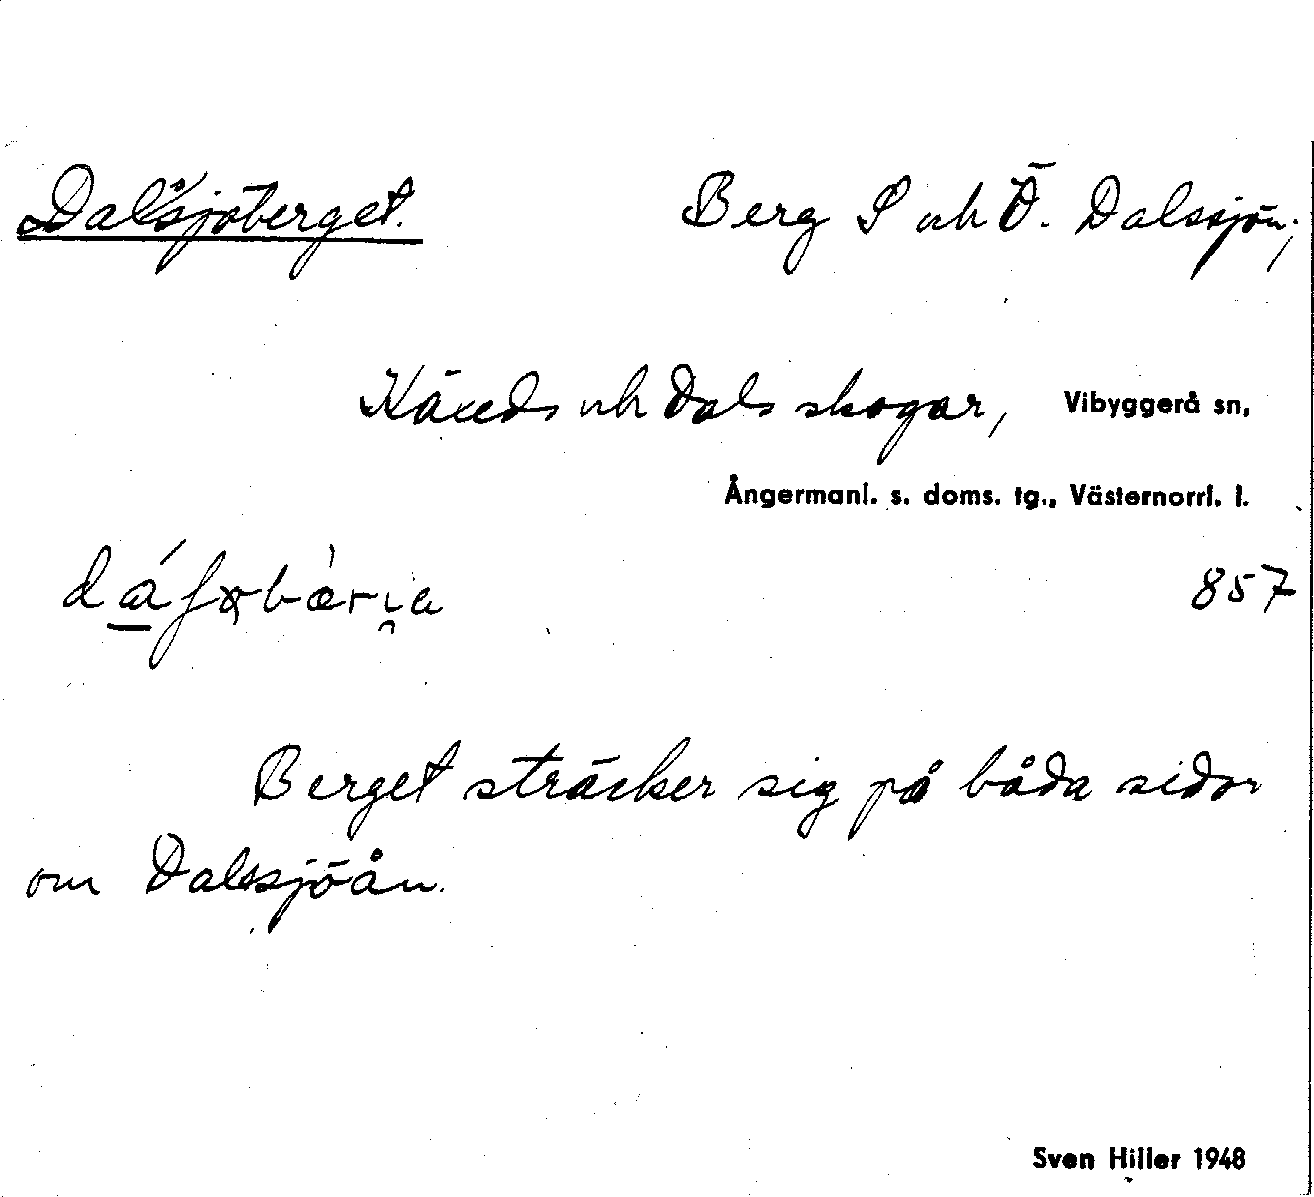 Dalssjöberget. Berg S och Ö. Dalssjön;
och Dals skogar, Vibyggerå sn,
Ångermanl. s. doms. tg., Västernorrl. l.
857
Berget sträcker sig på båda sidor
om Dalssjöån.
Sven Hiller 1948